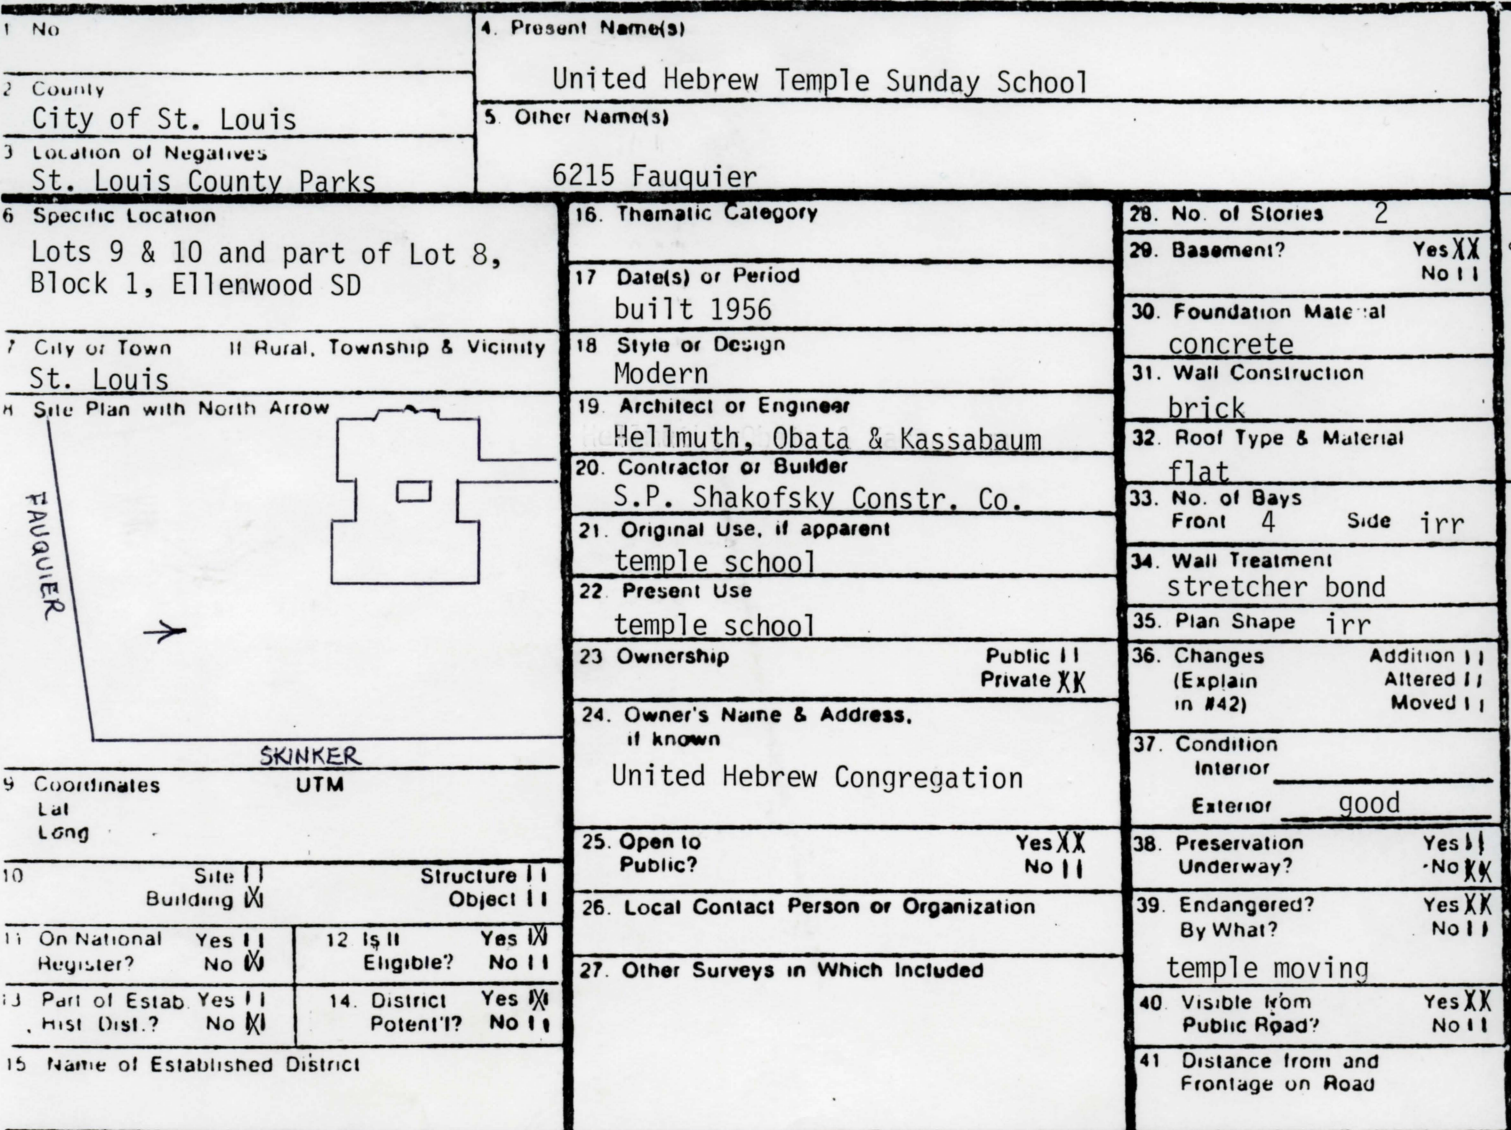 1 No
2 County
City of St. Louis
3 Location of Negatives
St. Louis County Parks
4. Present Name(s)
United Hebrew Temple Sunday School
5. Other Name(s)
6215 Fauquier
6 Specific Location
Lots 9 & 10 and part of Lot 8,
Block 1, Ellenwood SD
7 City or Town If Rural, Township & Vicinity
St. Louis
8 Site Plan with North Arrow
FAUQUIER
SKINKER
9 Coordinates UTM
Lat
Long
10 Site Structure
Building X Object
11 On National Yes
Register? No X
12 Is It Yes X
Eligible? No
13 Part of Estab. Yes
Hist Dist.? No X
14. District Yes X
Potent'l? No
15 Name of Established District
16. Thematic Category
17 Date(s) or Period
built 1956
18 Style or Design
Modern
19. Architect or Engineer
Hellmuth, Obata & Kassabaum
20. Contractor or Builder
S.P. Shakofsky Constr. Co.
21. Original Use, if apparent
temple school
22. Present Use
temple school
23 Ownership Public
Private XX
24. Owner's Name & Address,
if known
United Hebrew Congregation
25. Open to Yes XX
Public? No
26. Local Contact Person or Organization
27. Other Surveys in Which Included
28. No. of Stories 2
29. Basement? Yes XX
No
30. Foundation Material
concrete
31. Wall Construction
brick
32. Roof Type & Material
flat
33. No. of Bays
Front 4 Side irr
34. Wall Treatment
stretcher bond
35. Plan Shape irr
36. Changes Addition
(Explain Altered
in #42) Moved
37. Condition
Interior
Exterior good
38. Preservation Yes
Underway? No XX
39. Endangered? Yes XX
By What? No
temple moving
40. Visible from Yes XX
Public Road? No
41 Distance from and
Frontage on Road